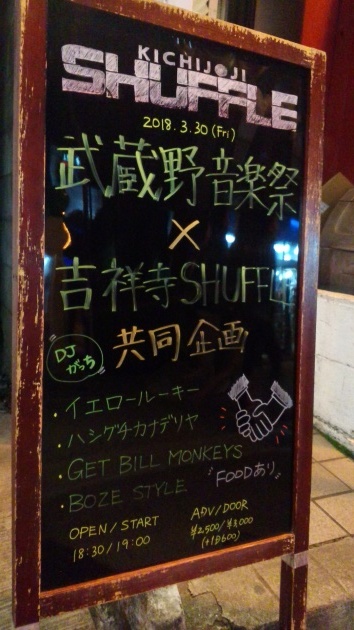 KICHIJOJI
SHUFFLE
2018.3.30 (Fri)
武蔵野音楽祭
×
吉祥寺SHUFFLE
共同企画
DJ
がっち
・イエロールーキー
・ハシグチカナデリヤ
・GET BILL MONKEYS
・BOZE STYLE
"FOODあり"
OPEN/START
18:30/19:00
ADV/DOOR
¥2,500/¥3,000
(+1D600)